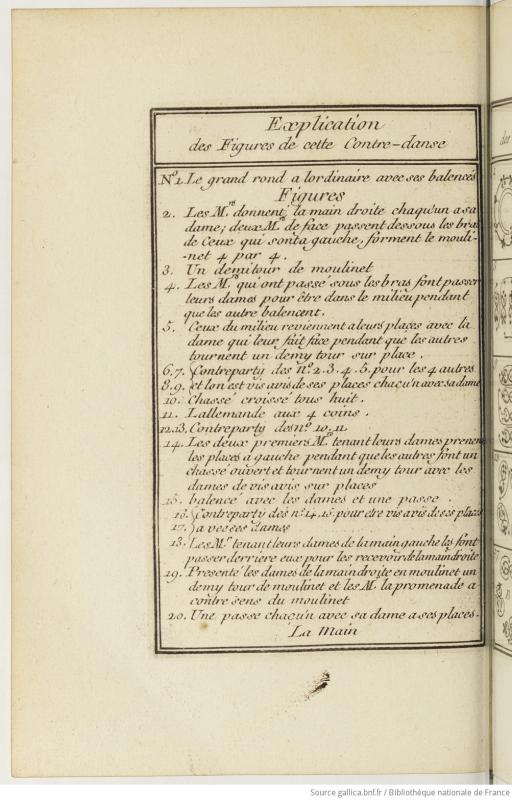 Explication
des Figures de cette Contre-danse
N.º1. Le grand rond a lordinaire avec ses balencés
Figures
2. Les M.rs donnent la main droite chaqu'un a sa
dame; deux M.rs de face passent dessous les bras
de Ceux qui sont a gauche, forment le mouli-
-net 4 par 4.
3. Un demi tour de moulinet
4. Les M.rs qui ont passé sous les bras font passer
leurs dames pour être dans le milieu pendant
que les autre balencent.
5. Ceux du milieu reviennent a leurs places avec la
dame qui leur fait face pendant que les autres
tournent un demy tour sur place.
6.7. Contreparty des n.º 2. 3. 4. 5. pour les 4 autres
8.9. et lon est vis avis de ses places chaqu'n avec sa dame
10. Chassé croissé tous huit.
11. Lallemande aux 4 coins.
12.13. Contreparty des n.º 10. 11
14. Les deux premiers M.rs tenant leurs dames prenent
les places à gauche pendant que les autres font un
chassé ouvert et tournent un demy tour avec les
dames de vis avis sur places
15. balencé avec les dames et une passe.
16. Contreparty des n.º 14. 15. pour etre vis avis de ses places
17. avec ses dames
18. Les M.rs tenant leurs dames de la main gauche les font
passer derriere eux pour les recevoir de la main droite
19. Presenté les dames de la main droite en moulinet un
demy tour de moulinet et les M.rs la promenade a
contre sens du moulinet
20. Une passe chaqu'n avec sa dame a ses places.
La Main
des
Source gallica.bnf.fr / Bibliothèque nationale de France